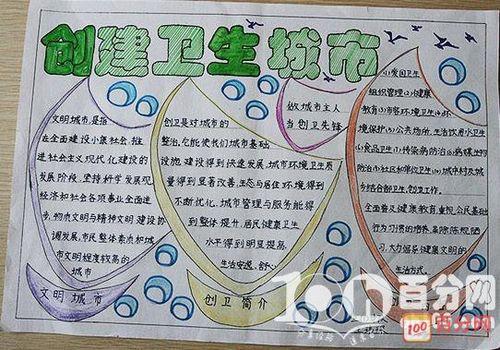 创建卫生城市
文明城市,是指
在全面建设小康社会,推
进社会主义现代化建设的
发展阶段,坚持科学发展观,
经济和社会各项事业全面进
步,物质文明与精神文明建设协
调发展,市民整体素质和城
市文明程度较高的
城市
文明城市
创卫是对城市的
整治,它能使我们城市基础
设施建设得到快速发展,城市环境卫生质
量得到显著改善,生态与居住环境得到
不断优化,城市管理与服务能得
到整体提升,居民健康卫生
水平得到明显提高,
生活安逸、舒心
创卫简介
做城市主人
当创卫先锋
(1)爱国卫生
组织管理(2)健康
教育(3)市容环境卫生(4)环
境保护(5)公共场所、生活饮用水卫生
(6)食品卫生(7)传染病防治(8)病媒生物
防治(9)社区和单位卫生(10)城中村及城
乡结合部卫生,创卫工作,
全面普及健康教育,重视公民基础
行为习惯的培养,革除陈规陋
习,大力倡导健康文明的
生活方式。
100
百分网
100
百分网